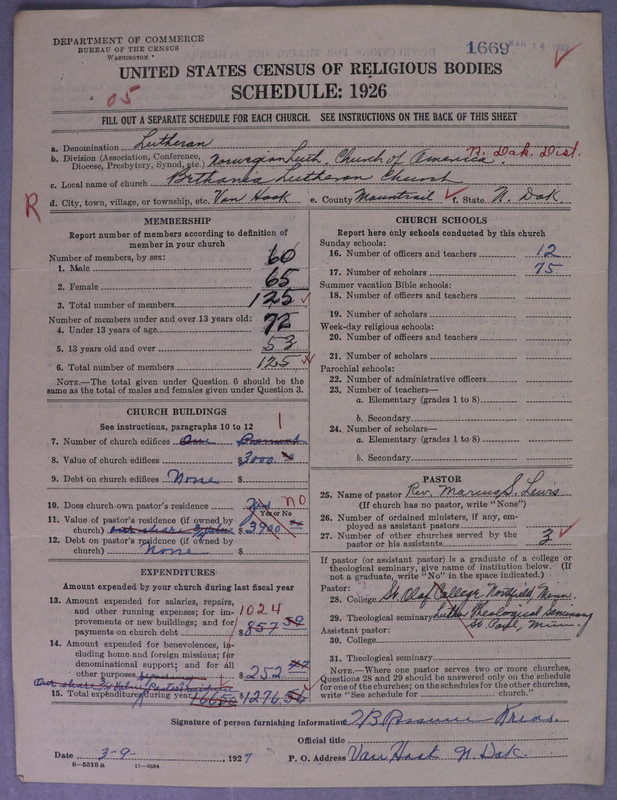 DEPARTMENT OF COMMERCE
BUREAU OF THE CENSUS
WASHINGTON
1669
UNITED STATES CENSUS OF RELIGIOUS BODIES
SCHEDULE: 1926
05
FILL OUT A SEPARATE SCHEDULE FOR EACH CHURCH. SEE INSTRUCTIONS ON THE BACK OF THIS SHEET
a. Denomination Lutheran
b. Division (Association, Conference, Diocese, Presbytery, Synod, etc.) Norwegian Luth. Church of America. N. Dak. Dist.
c. Local name of church Bethania Lutheran Church
R
d. City, town, village, or township, etc. Van Hook e. County Mountrail f. State N. Dak.
MEMBERSHIP
Report number of members according to definition of member in your church
Number of members, by sex:
1. Male 60
2. Female 65
3. Total number of members 125
Number of members under and over 13 years old:
4. Under 13 years of age 72
5. 13 years old and over 53
6. Total number of members 125
NOTE.—The total given under Question 6 should be the same as the total of males and females given under Question 3.
CHURCH BUILDINGS
See instructions, paragraphs 10 to 12
7. Number of church edifices One 1
8. Value of church edifices $3000
9. Debt on church edifices None $
10. Does church own pastor's residence yes no
Yes or No
11. Value of pastor's residence (if owned by church) our share $3900
12. Debt on pastor's residence (if owned by church) None $
EXPENDITURES
Amount expended by your church during last fiscal year
13. Amount expended for salaries, repairs, and other running expenses; for improvements or new buildings; and for payments on church debt 1024 $857
14. Amount expended for benevolences, including home and foreign missions; for denominational support; and for all other purposes $252
Our share
15. Total expenditure during year $1276
CHURCH SCHOOLS
Report here only schools conducted by this church
Sunday schools:
16. Number of officers and teachers 12
17. Number of scholars 75
Summer vacation Bible schools:
18. Number of officers and teachers
19. Number of scholars
Week-day religious schools:
20. Number of officers and teachers
21. Number of scholars
Parochial schools:
22. Number of administrative officers
23. Number of teachers—
a. Elementary (grades 1 to 8)
b. Secondary
24. Number of scholars—
a. Elementary (grades 1 to 8)
b. Secondary
PASTOR
25. Name of pastor Rev. Marcus S. Lewis
(If church has no pastor, write "None")
26. Number of ordained ministers, if any, employed as assistant pastors
27. Number of other churches served by the pastor or his assistants 3
If pastor (or assistant pastor) is a graduate of a college or theological seminary, give name of institution below. (If not a graduate, write "No" in the space indicated.)
Pastor:
28. College St Olaf College Northfield, Minn.
29. Theological seminary Luther Theological Seminary
St. Paul, Minn.
Assistant pastor:
30. College
31. Theological seminary
NOTE.—Where one pastor serves two or more churches, Questions 28 and 29 should be answered only on the schedule for one of the churches; on the schedules for the other churches, write "See schedule for church."
Signature of person furnishing information
Official title
Date 3-9-, 1927 P. O. Address Van Hook N. Dak.
6—5516a 11—9684